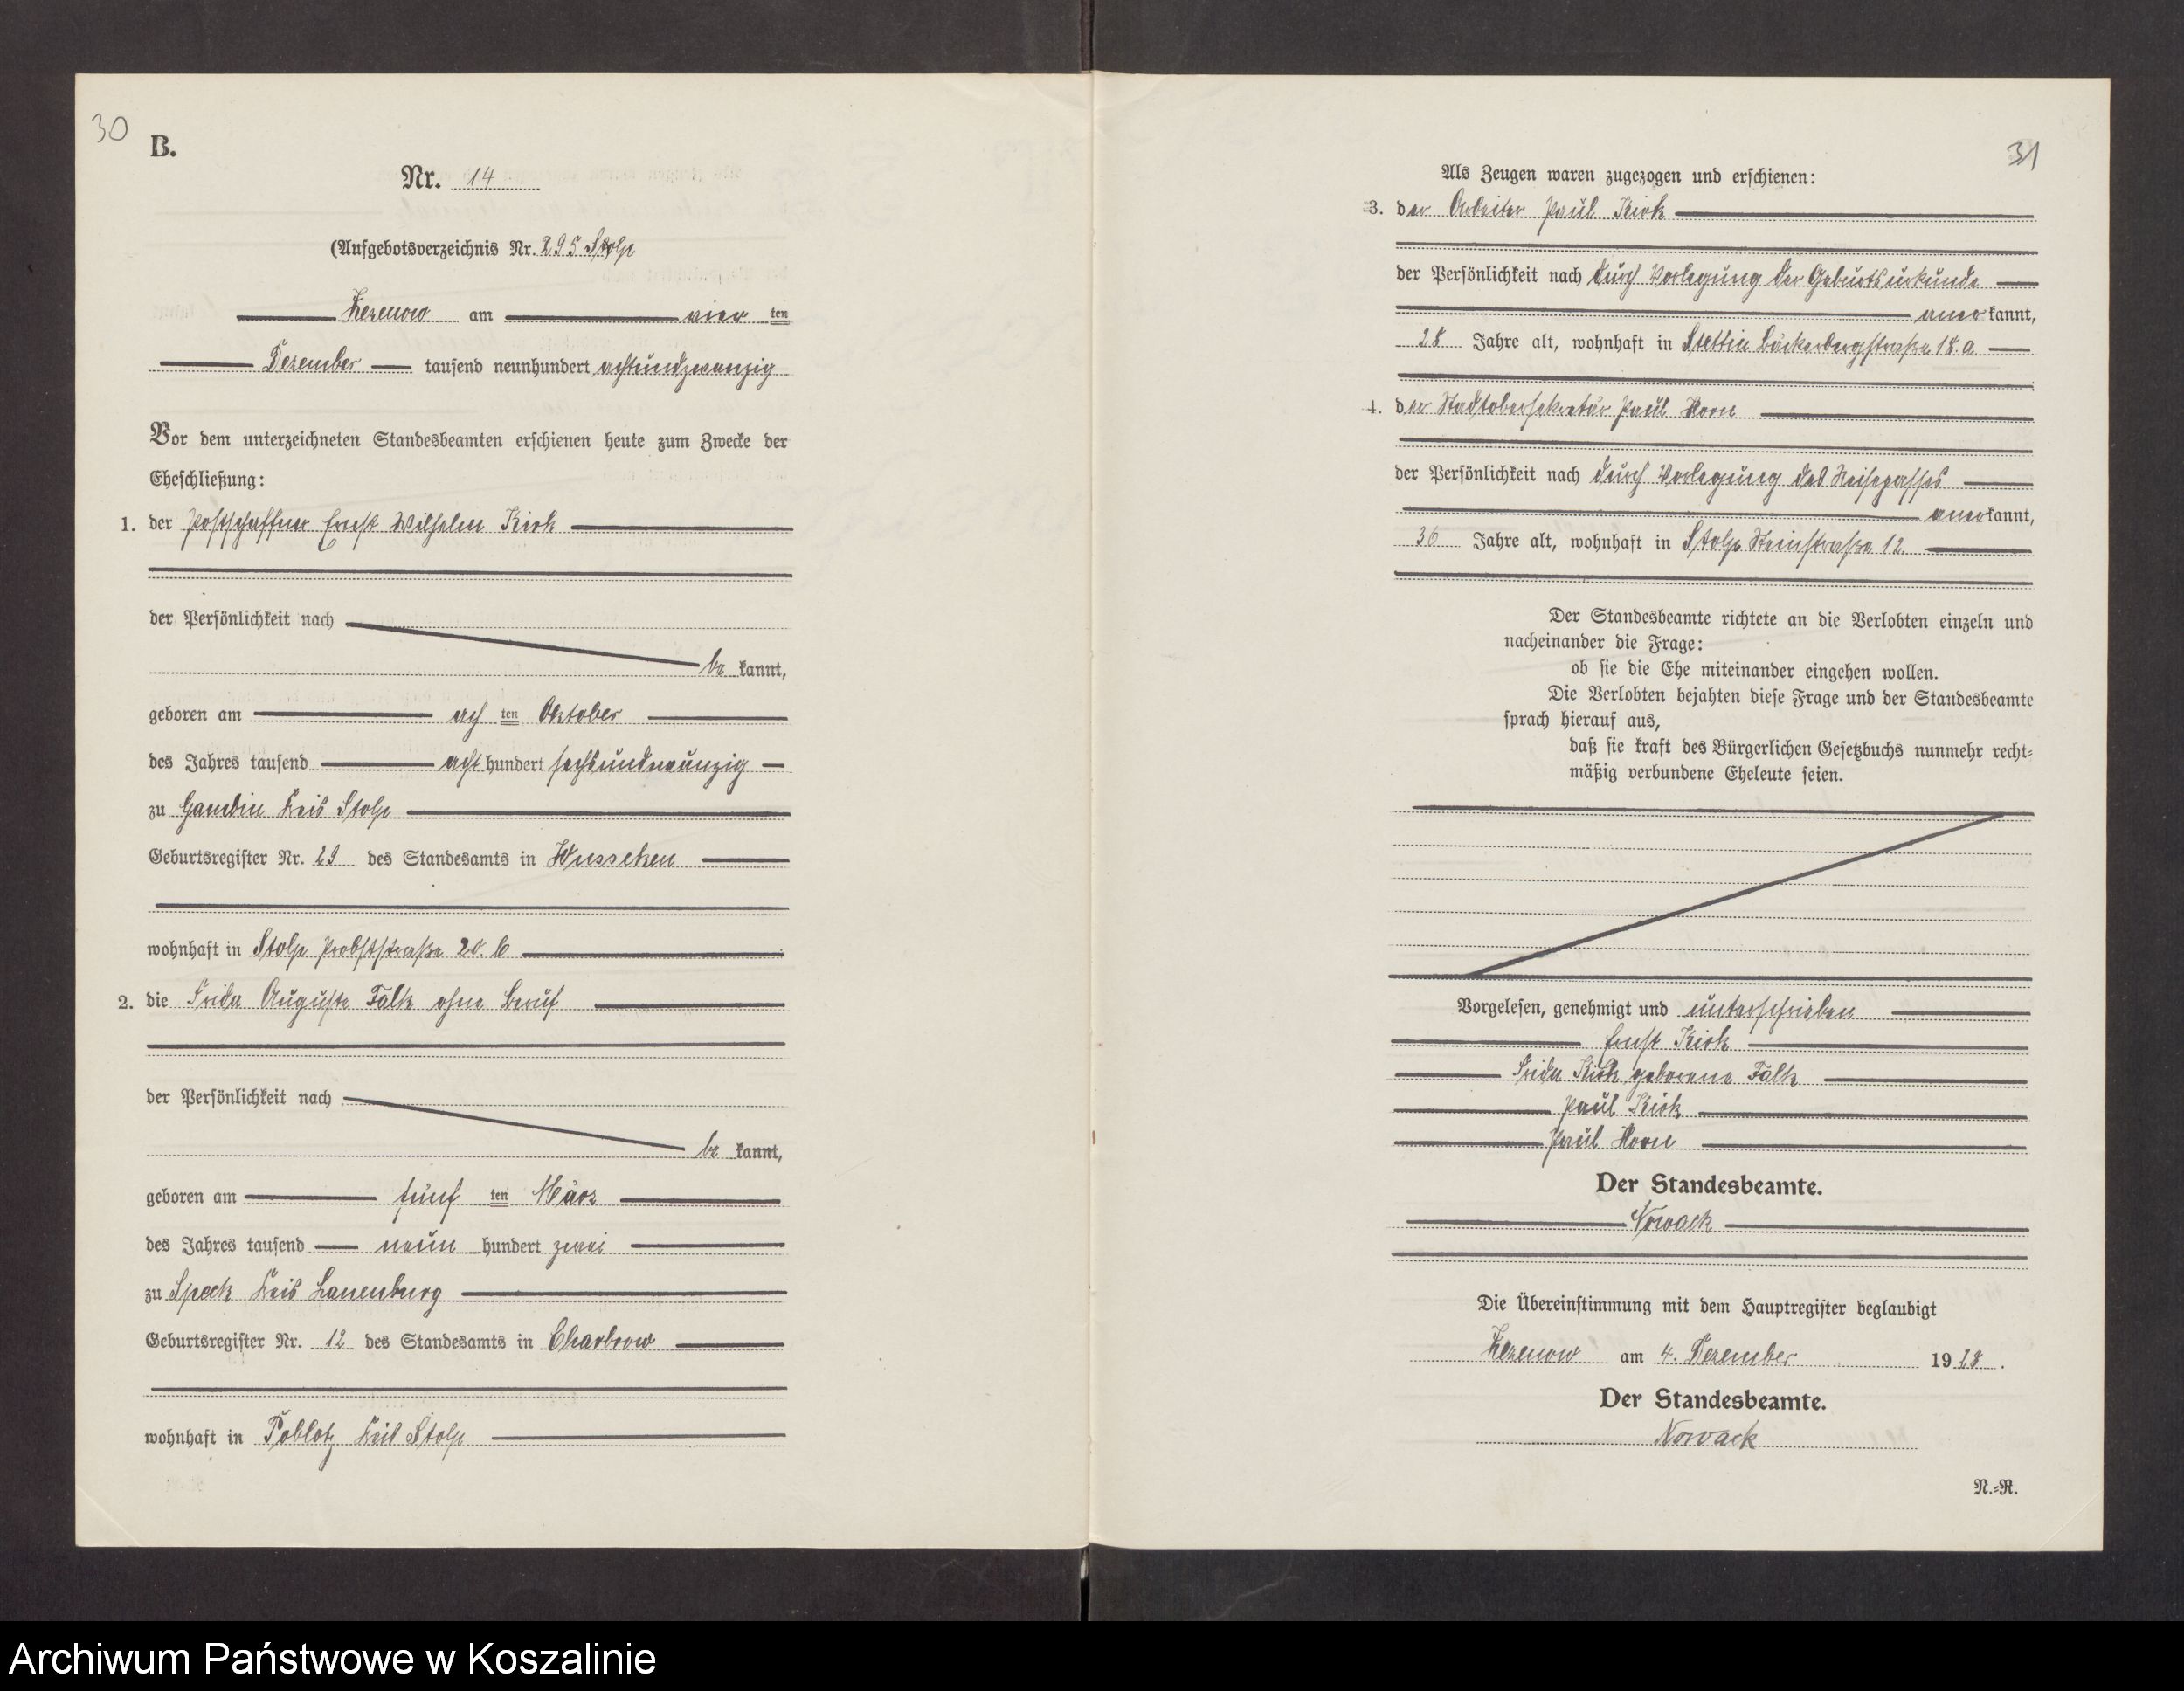 30
B.
Nr. 14
(Aufgebotsverzeichnis Nr. 295 Stolp
Zezenow am vier ten
Dezember tausend neunhundert achtundzwanzig
Vor dem unterzeichneten Standesbeamten erschienen heute zum Zwecke der
Eheschließung:
1. der Postschaffner Ernst Wilhelm Kirk
der Persönlichkeit nach
be kannt,
geboren am ach ten Oktober
des Jahres tausend acht hundert sechsundneunzig
zu Gambin Kreis Stolp
Geburtsregister Nr. 29 des Standesamts in Wussecken
wohnhaft in Stolp Probststraße 20. b
2. die Frida Auguste Falk ohne Beruf
der Persönlichkeit nach
be kannt,
geboren am fünf ten März
des Jahres tausend neun hundert zwei
zu Speck Kreis Lauenburg
Geburtsregister Nr. 12 des Standesamts in Charbrow
wohnhaft in Poblotz Kreis Stolp
31
Als Zeugen waren zugezogen und erschienen:
3. der Arbeiter Paul Kirk
der Persönlichkeit nach durch Vorlegung der Geburtsurkunde
anerkannt,
28 Jahre alt, wohnhaft in Stettin Bäckerbergstraße 18. a.
4. der Stadtobersekretär Paul Horn
der Persönlichkeit nach durch Vorlegung des Reisepasses
anerkannt,
36 Jahre alt, wohnhaft in Stolp Steinstraße 12.
Der Standesbeamte richtete an die Verlobten einzeln und
nacheinander die Frage:
ob sie die Ehe miteinander eingehen wollen.
Die Verlobten bejahten diese Frage und der Standesbeamte
sprach hierauf aus,
daß sie kraft des Bürgerlichen Gesetzbuchs nunmehr recht-
mäßig verbundene Eheleute seien.
Vorgelesen, genehmigt und unterschrieben
Ernst Kirk
Frida Kirk geborene Falk
Paul Kirk
Paul Horn
Der Standesbeamte.
Nowack
Die Übereinstimmung mit dem Hauptregister beglaubigt
Zezenow am 4. Dezember 1928.
Der Standesbeamte.
Nowack
N.-R.
Archiwum Państwowe w Koszalinie